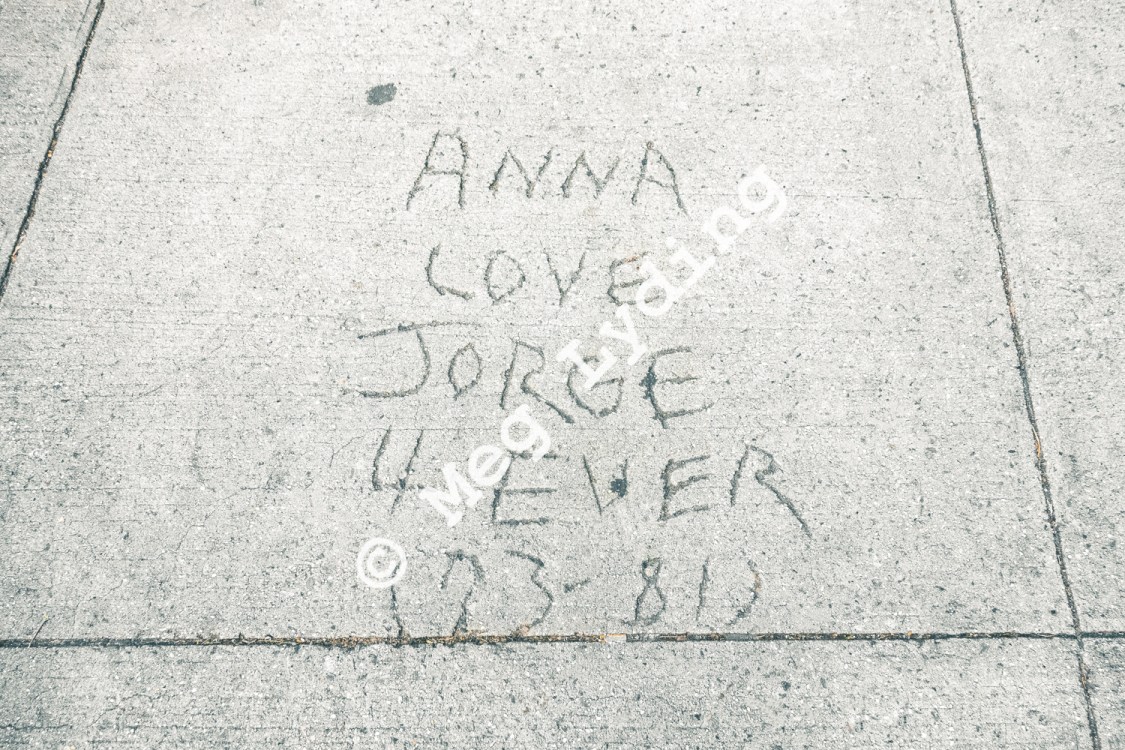 ANNA
LOVE
JORGE
4 EVER
© Meg Lyding